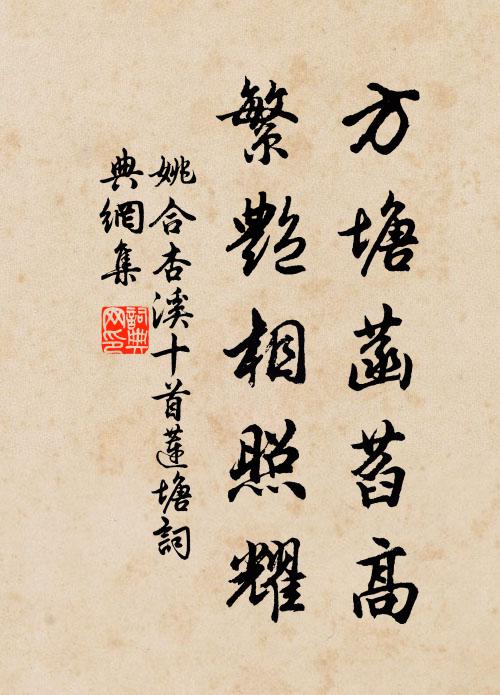 方塘菡萏高
繁艷相照耀
姚合杏溪十首蓮塘詞
典網集
詞典网印